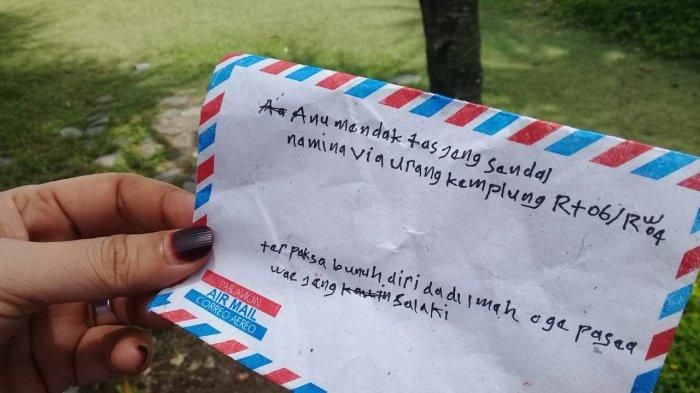 A̶a̶ Anu mendak tas jeng sendal
namina Via urang kemplung Rt06/Rw04
terpaksa bunuh diri da di imah oge pasea
wae jeng k̶a̶w̶i̶n̶ Salaki
PAR AVION
AIR MAIL
CORREO AEREO